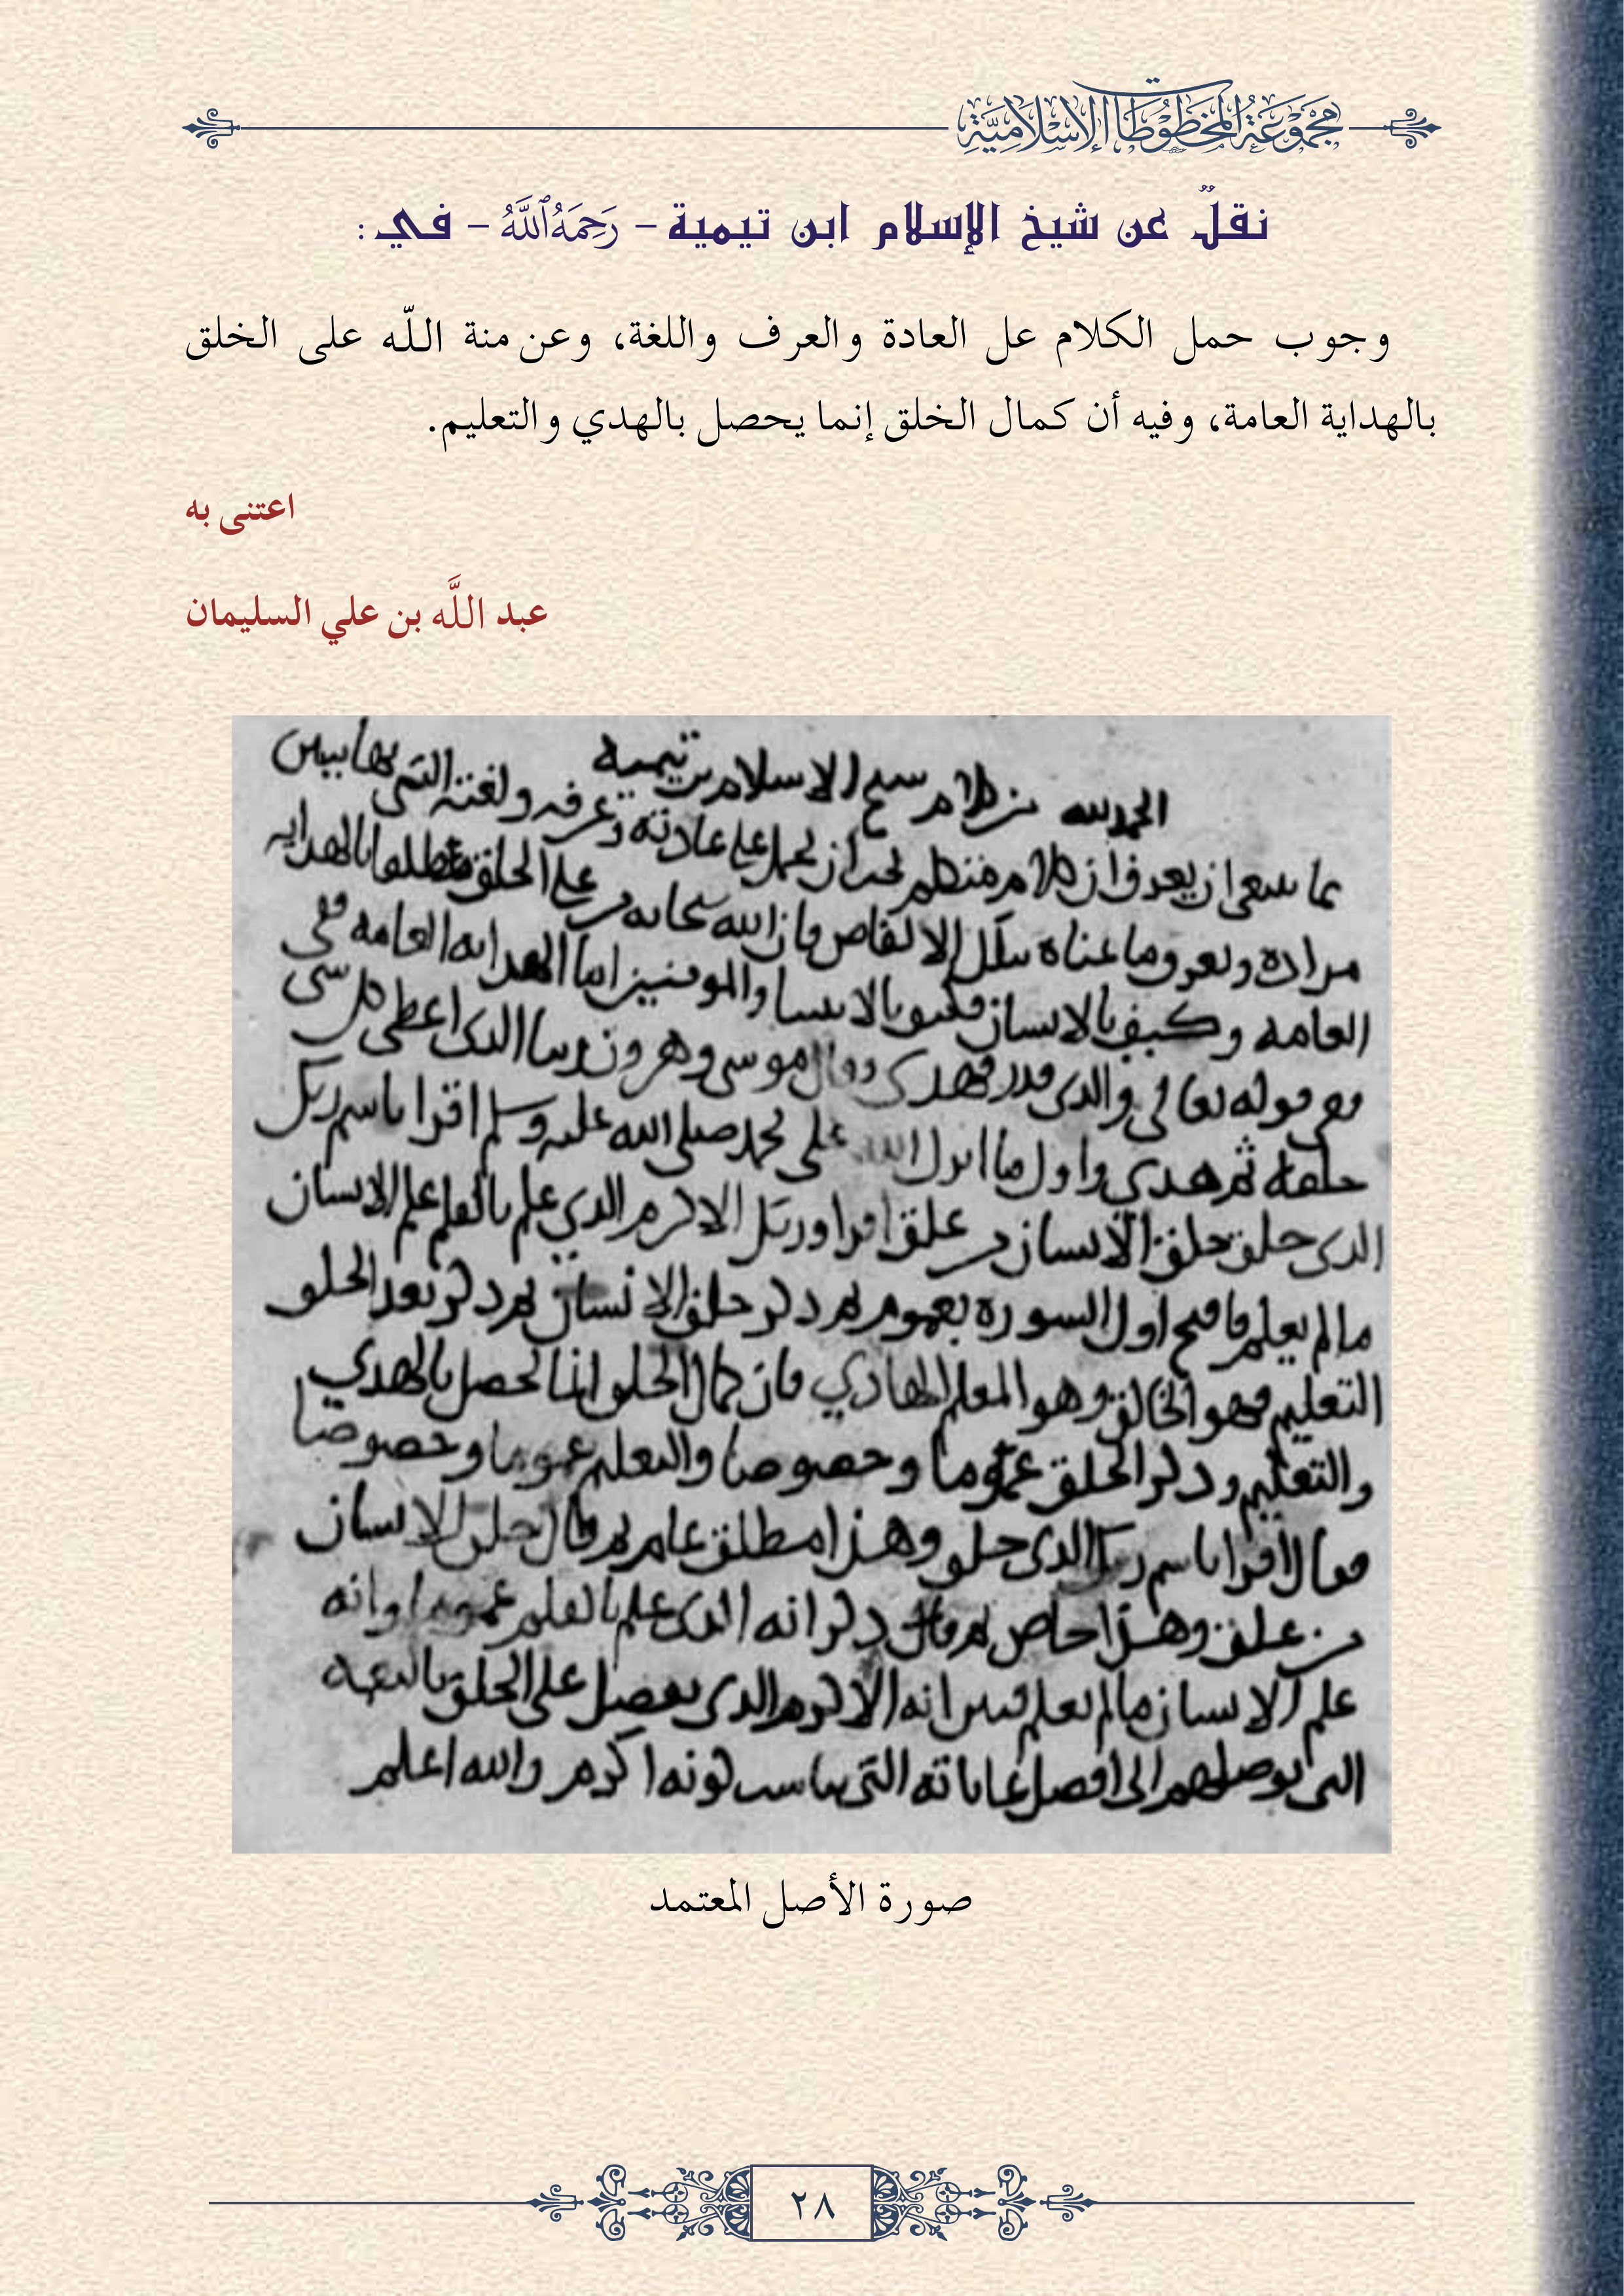 مجموعة المخطوطات الإسلامية
نقلٌ عن شيخ الإسلام ابن تيمية – رَحِمَهُ ٱللَّهُ – في :
وجوب حمل الكلام عل العادة والعرف واللغة، وعن منة اللّه على الخلق
بالهداية العامة، وفيه أن كمال الخلق إنما يحصل بالهدي والتعليم.
اعتنى به
عبد اللَّه بن علي السليمان
الحمد لله من كلام شيخ الاسلام بن تيمية
مما ينبغي ان يعرف ان كلام متكلم يجب ان يحمل على عادته وعرفه ولغته التي بها يبين
مراده ويعرف وما عناه بتلك الالفاظ فان الله سبحانه من على الخلق بالهدايه
العامه وكيف بالانسان فكيف بالانبيا والمومنين اما الهدايه العامه ففي
قوله تعالى والذي قدر فهدى وقال موسى وهرون ربنا الذي اعطى كل شي
خلقه ثم هدي واول ما انزل الله على محمد صلى الله عليه وسلم اقرا باسم ربك
الذي خلق خلق الانسان من علق اقرا وربك الاكرم الذي علم بالقلم علم الانسان
مالم يعلم فافتتح اول السورة بعموم ثم ذكر خلق الانسان ثم ذكر بعد الخلق
التعليم فهو الخالق وهو المعلم الهادي فان كمال الخلق انما يحصل بالهدي
والتعليم وذكر الخلق عموما وخصوصا والتعليم عموما وخصوصا
فقال اقرا باسم ربك الذي خلق وهذا مطلق عام ثم قال خلق الانسان
من علق وهذا خاص ثم ذكر انه الذي علم بالقلم عموما وانه
علم الانسان مالم يعلم فبين انه الاكرم الذي يفضل على الخلق
التي يوصلهم الى افضل غاياته التي يناسب كونه اكرم والله اعلم
صورة الأصل المعتمد
٢٨